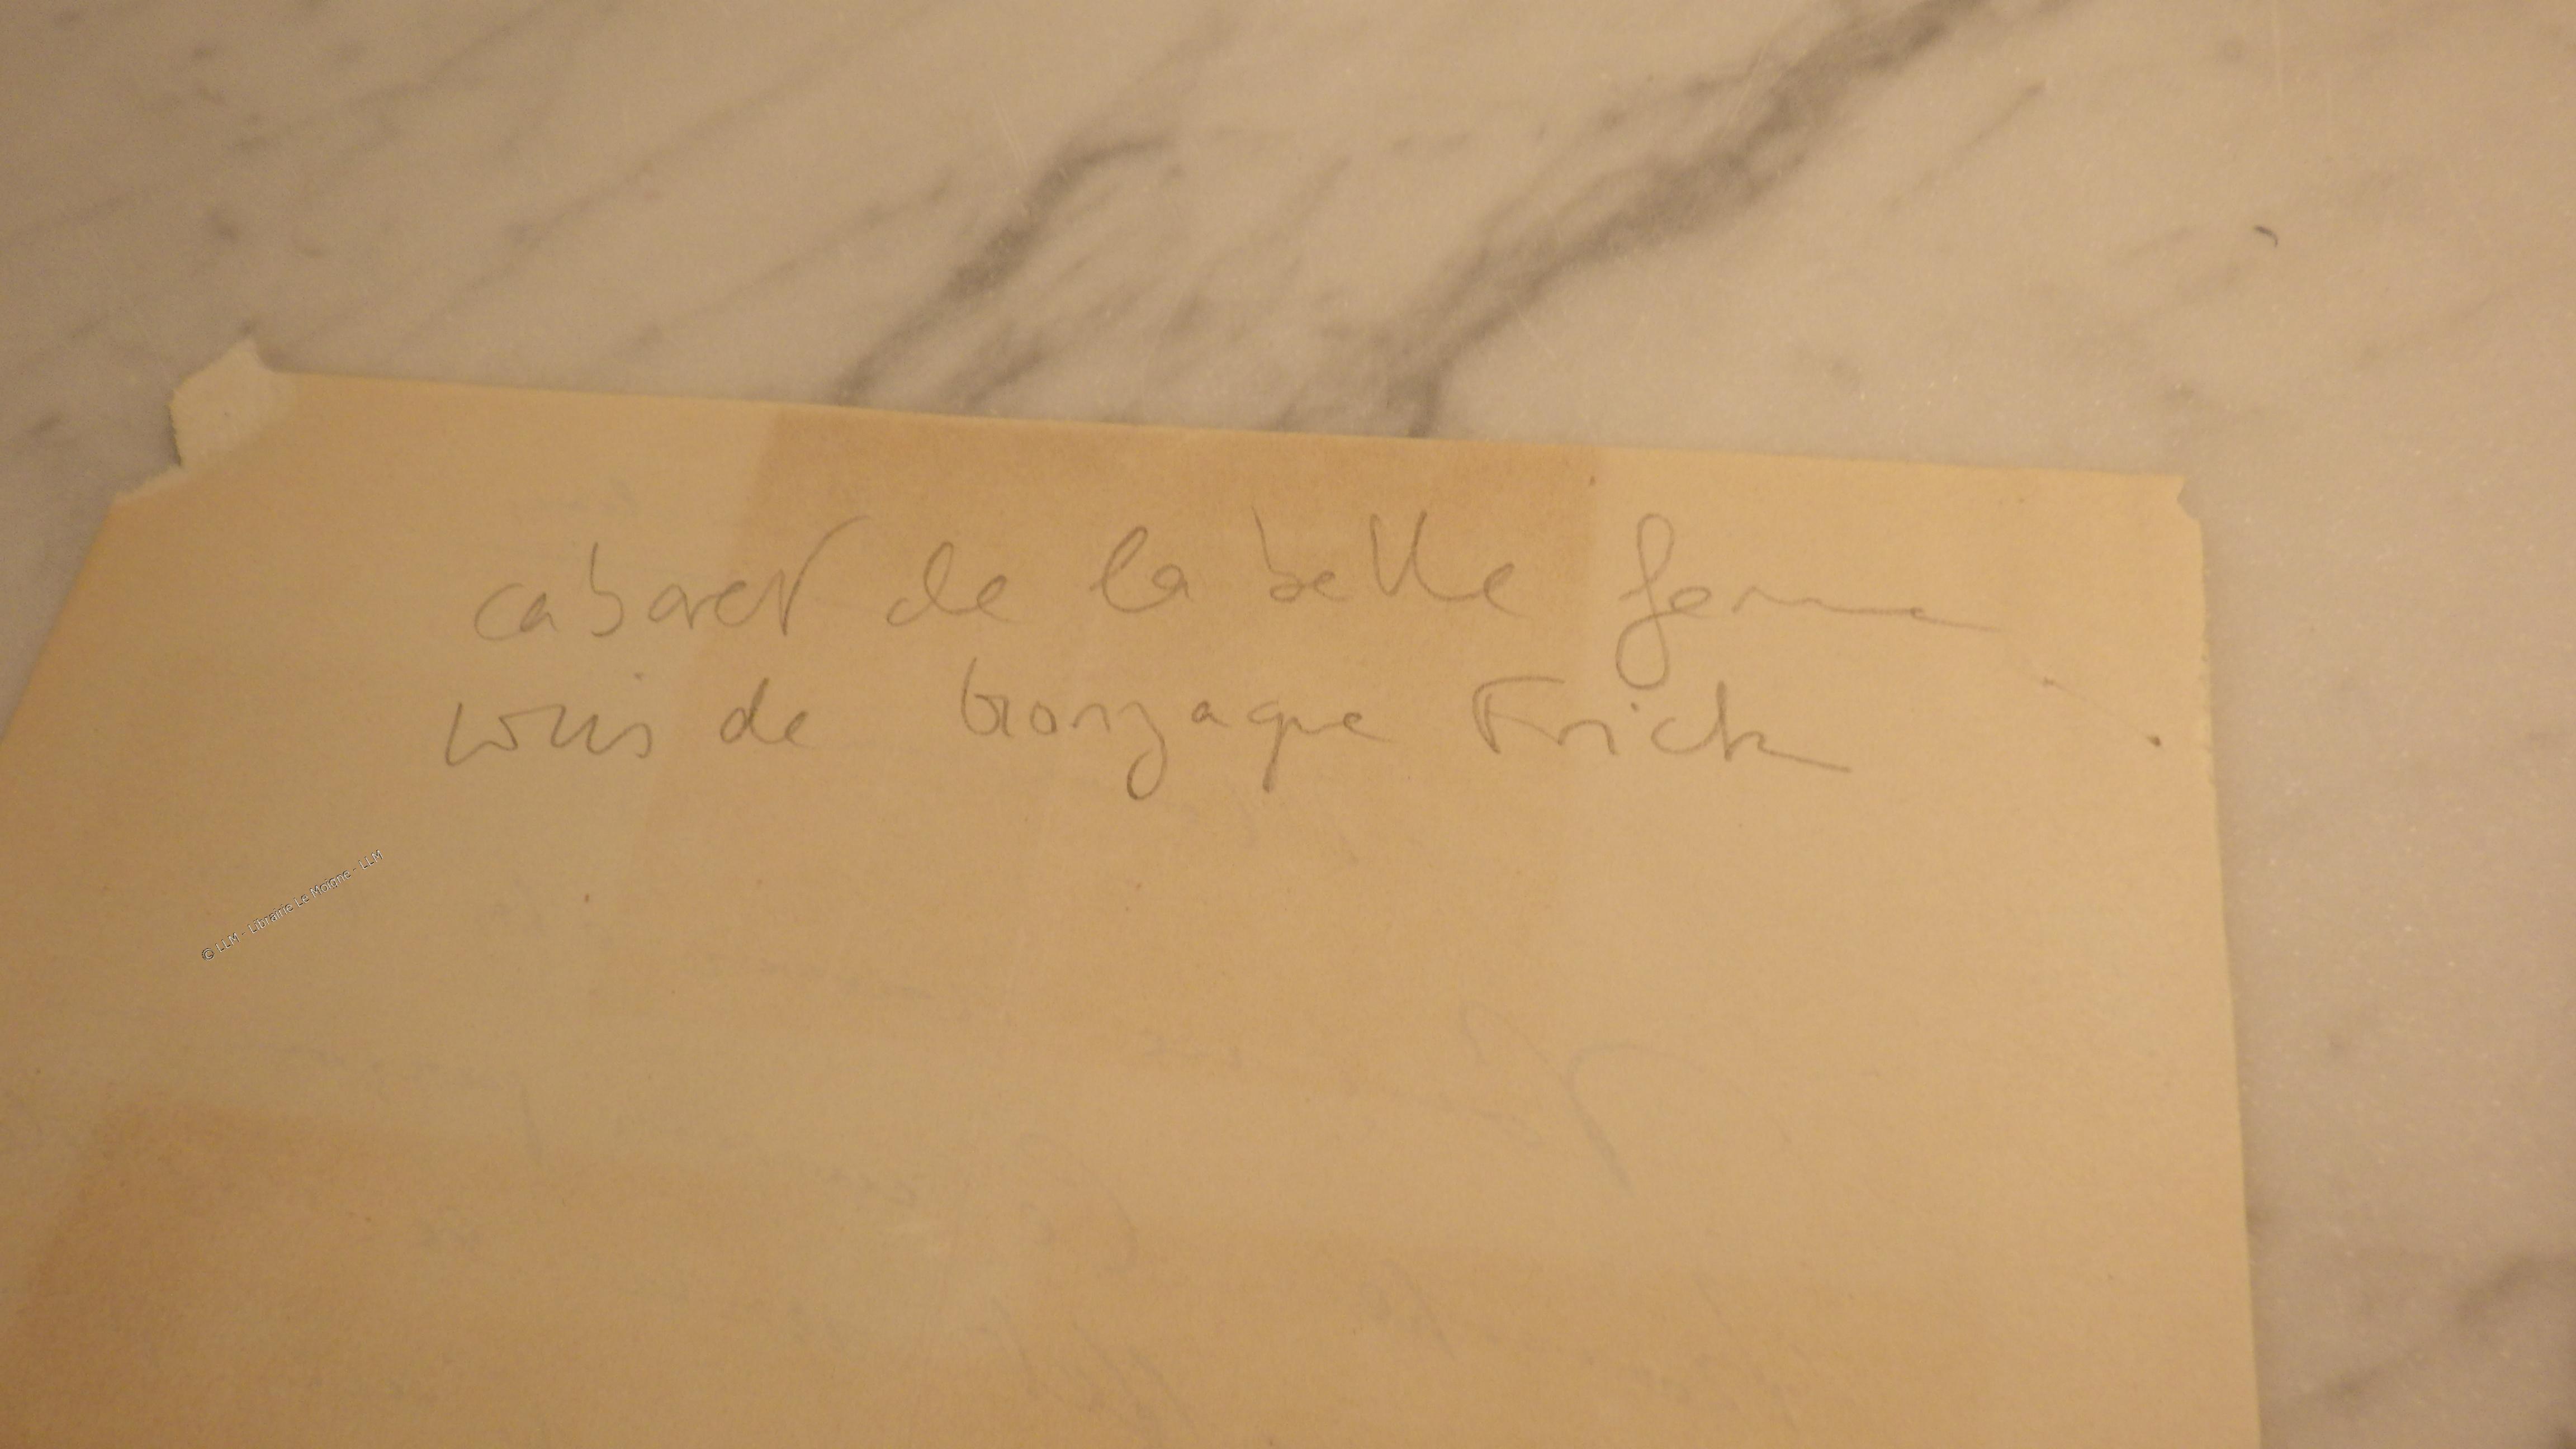 cabaret de la belle femme
Louis de Gonzague Frick
© LLM - Librairie Le Moigne - LLM